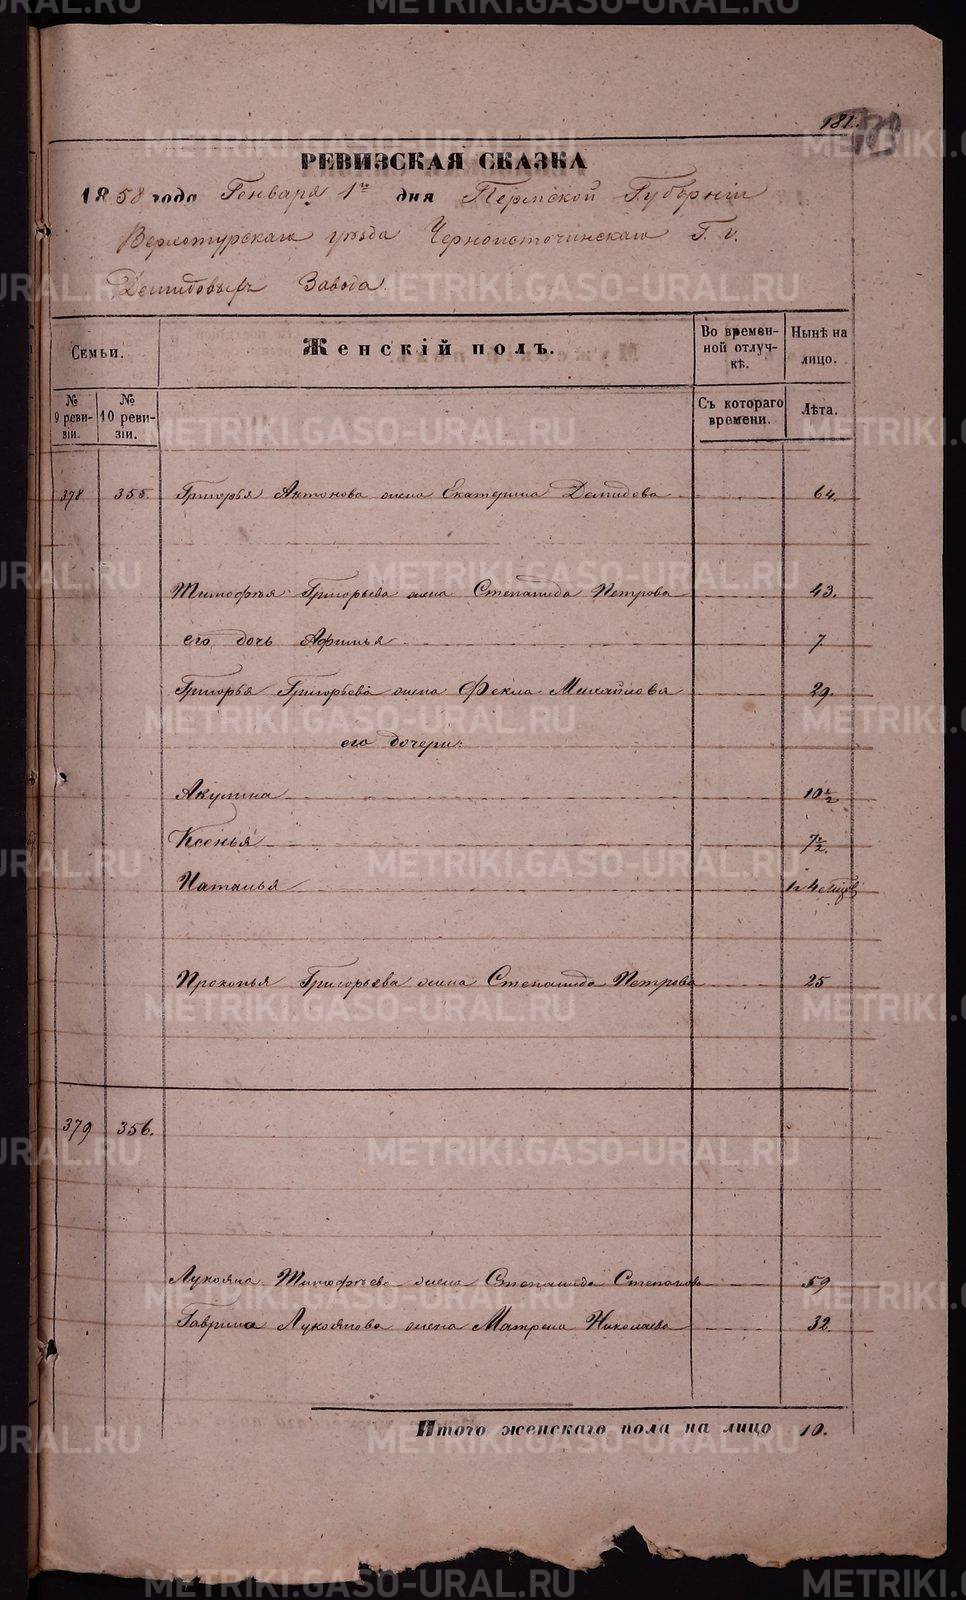 181.
РЕВИЗСКАЯ СКАЗКА
1858 года Генваря 1го дня Пермской Губерніи
Верхотурскаго уѣзда Черноисточинскаго Г.г.
Демидовыхъ Завода.
Семьи.
Женскій полъ.
Во времен-
ной отлуч-
кѣ.
Нынѣ на
лицо.
№
9 реви-
зіи.
№
10 реви-
зіи.
Съ котораго
времени.
Лѣта.
378 355. Григорья Антонова жена Екатерина Демидова 64.
Тимофѣя Григорьева жена Степанида Петрова 43.
его дочь Афимья 7.
Григорья Григорьева жена Фекла Михайлова 29.
его дочери:
Акулина 10½
Ксенья 7½.
Наталья 4
Прокопья Григорьева жена Степанида Петрова 25
379 356.
Лукояна Тимофѣева жена Степанида Степанова 59
Гаврила Лукоянова жена Матрена Николаева 32.
Итого женскаго пола на лицо 10.
METRIKI.GASO-URAL.RU